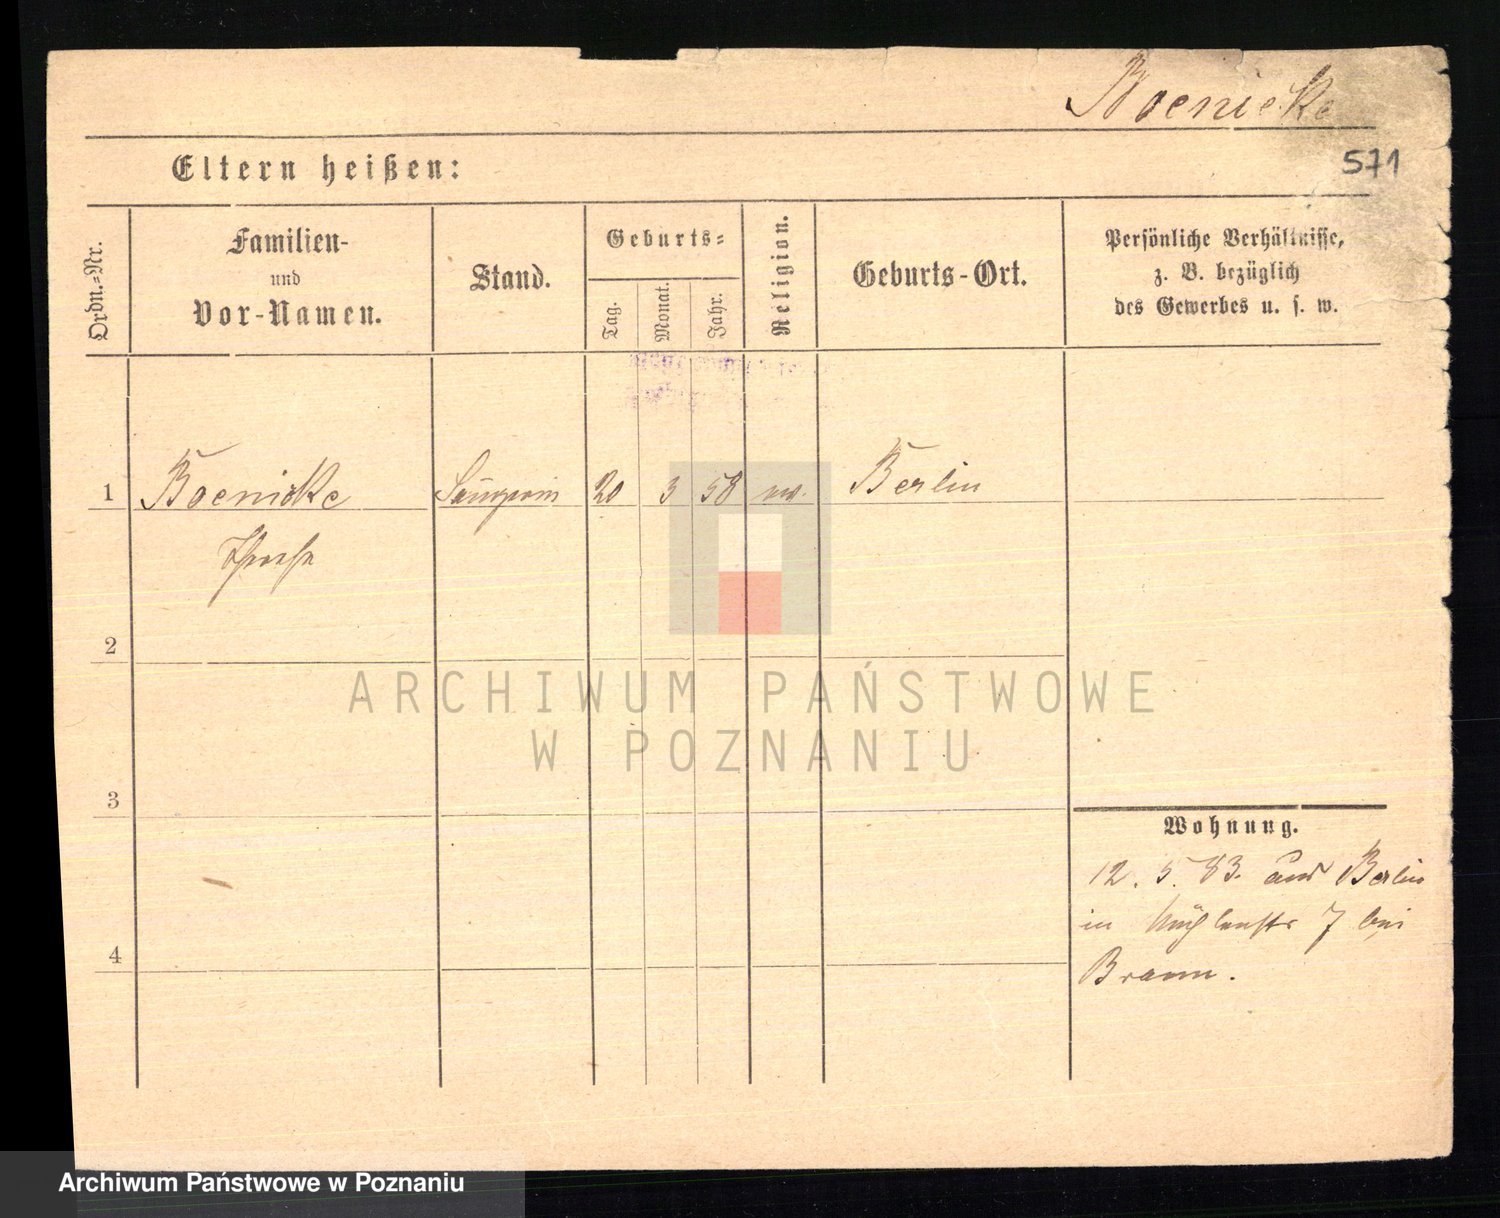 Boenicke
571
Eltern heißen:
Ordn.-Nr.
Familien-
und
Vor-Namen.
Stand.
Geburts-
Tag.
Monat.
Jahr.
Religion.
Geburts-Ort.
Persönliche Verhältnisse,
z. B. bezüglich
des Gewerbes u. s. w.
1 Boenicke Sängerin 20 3 58 Berlin
2
3
4
Wohnung.
12. 5. 83. aus Berlin
in Mühlenstr 7 bei
Braun.
ARCHIWUM PAŃSTWOWE
W POZNANIU
Archiwum Państwowe w Poznaniu